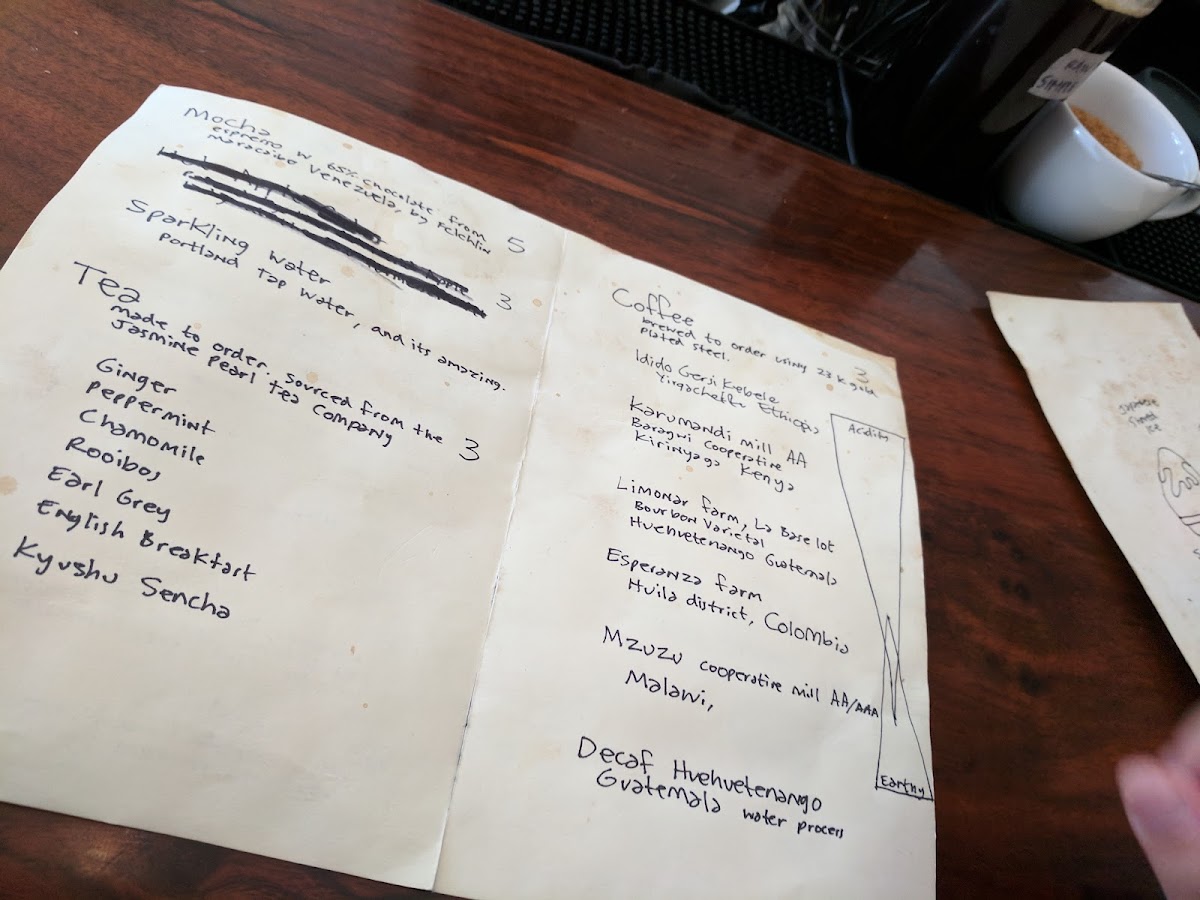 Mocha
espresso w 65% chocolate from
Maracaibo Venezuela, by Felchlin 5
Sparkling water 3
Portland Tap water, and its amazing.
Tea
made to order. sourced from the
Jasmine pearl tea company 3
Ginger
Peppermint
Chamomile
Rooibos
Earl Grey
English Breakfast
Kyushu Sencha
Coffee 3
brewed to order using 23k gold
plated steel.
Idido Gersi Kebele
Yirgacheffe Ethiopia
Karumandi mill AA
Baragwi cooperative
Kirinyaga Kenya
Limonar farm, La Base lot
Bourbon Varietal
Huehuetenango Guatemala
Esperanza farm
Huila district, Colombia
Mzuzu cooperative mill AA/AAA
Malawi,
Decaf Huehuetenango
Guatemala water process
Acidity
Earthy